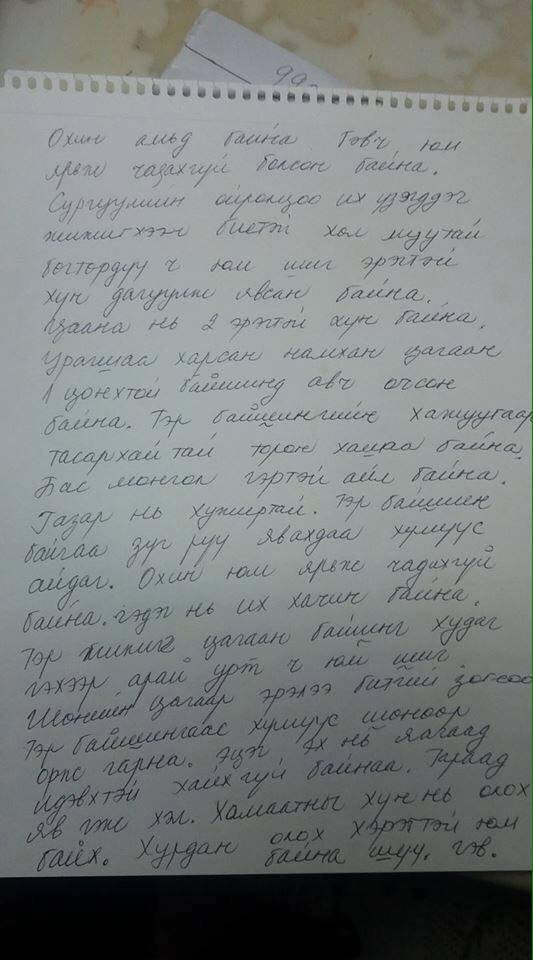 99
Охин амьд байна Гэвч юм
ярьж чадахгүй болсон байна.
Сургуулийн ойролцоо их үзэгддэг
жижигхээн биетэй хөл муутай
бөгтөрдүү ч юм шиг эрэгтэй
хүн дагуулж явсан байна.
Цаана нь 2 эрэгтэй хүн байна.
Урагшаа харсан намхан цагаан
1 цонхтой байшинд авч очсон
байна. Тэр байшингийн хажуугаар
тасархай тай төмөр хашаа байна.
Бас монгол гэртэй айл байна.
Газар нь хужиртай. Тэр байшин
байгаа зүг рүү явахдаа хүмүүс
айдаг. Охин юм ярьж чадахгүй
байна. гэдэг нь их хачин байна.
Тэр жижиг цагаан байшинг худаг
гэхээр арай урт ч юм шиг.
Шөнийн цагаар эрэлээ битгий зогсоо
Тэр байшингаас хүмүүс шөнөөр
орж гарна. Эцэг эх нь яагаад
идэвхтэй хайхгүй байнаа. Гараад
яв гэж хэл. Хамаатны хүн нь олох
байх. Хурдан олох хэрэгтэй юм
байна шүү. гэв.